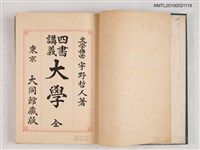 NMTL20100521119
文學博士 宇野哲人著
四書
講義
大學 全
東京 大同館藏版